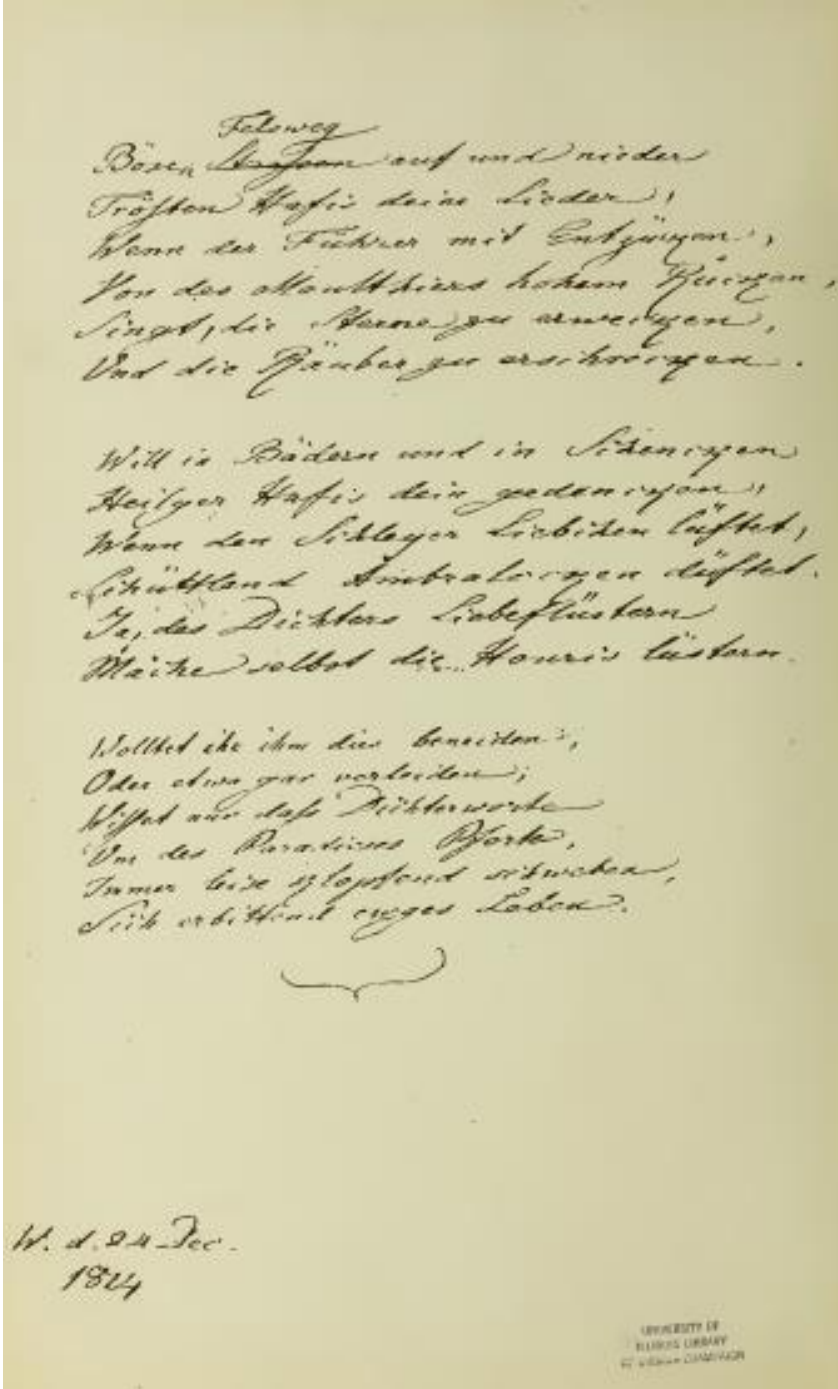 Felsweg
Bösen auf und nieder
Trösten Hafis deine Lieder,
Wenn der Führer mit Entzücken,
Von des Maulthiers hohem Rücken,
Singt, die Sterne zu erwecken,
Und die Räuber zu erschrecken.
Will in Bädern und in Schencken
Heilger Hafis dein gedencken,
Wenn den Schleyer Liebchen lüftet,
Schüttlend Ambralocken düftet.
Ja, des Dichters Liebeflüstern
Mache selbst die Houris lüstern.
Wolltet ihr ihm dies beneiden,
Oder etwa gar verleiden;
Wisset nur dass Dichterworte
Um des Paradieses Pforte,
Immer leise klopfend schweben,
Sich erbittend ewges Leben.
W. d. 24 Dec.
1814
UNIVERSITY OF
ILLINOIS LIBRARY
AT URBANA-CHAMPAIGN